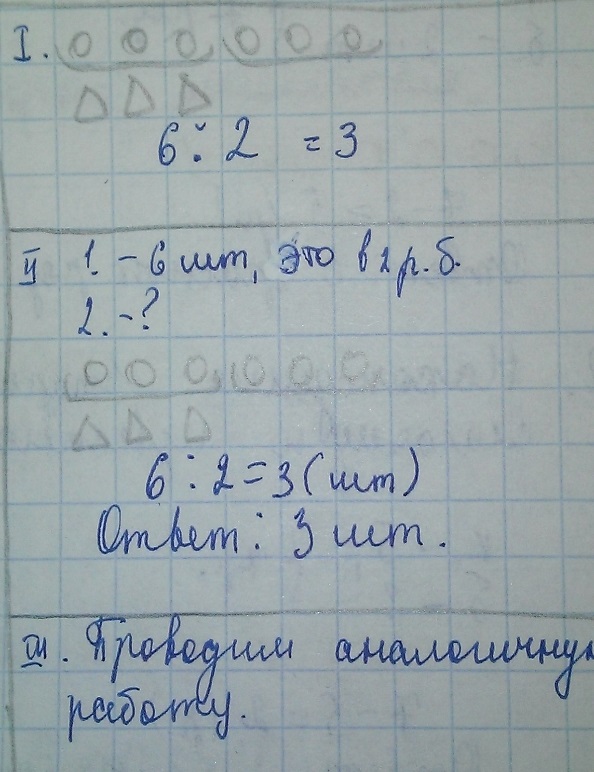 I.
6 : 2 = 3
II 1. - 6 шт, это в 2 р. б.
2. - ?
6 : 2 = 3 (шт)
Ответ: 3 шт.
III. Проводим аналогичную
работу.